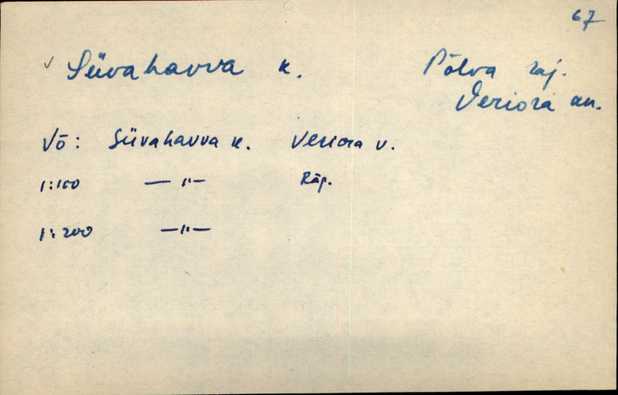 67
√ Süvahavva k. Põlva raj.
Veriora kn.
Võ: Süvahavva k. Veriora v.
1:100 —"— Räp.
1:200 —"—